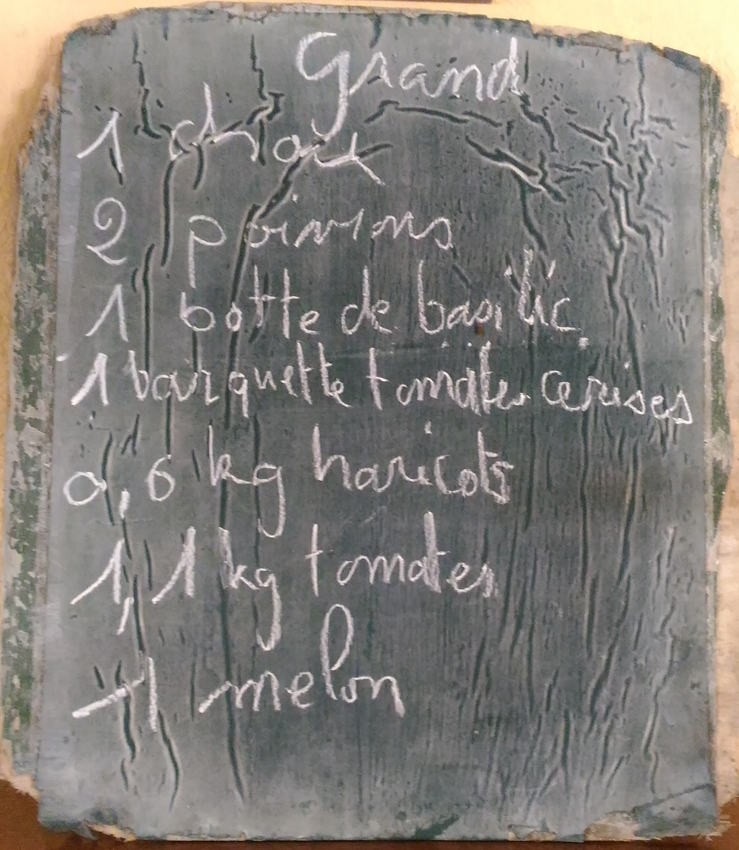 Grand
1 choux
2 poivrons
1 botte de basilic
1 barquette tomates cerises
0,6 kg haricots
1,1 kg tomates
1 melon